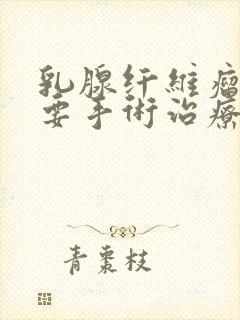 乳腺纤維瘤
要手術治療
青棗枝